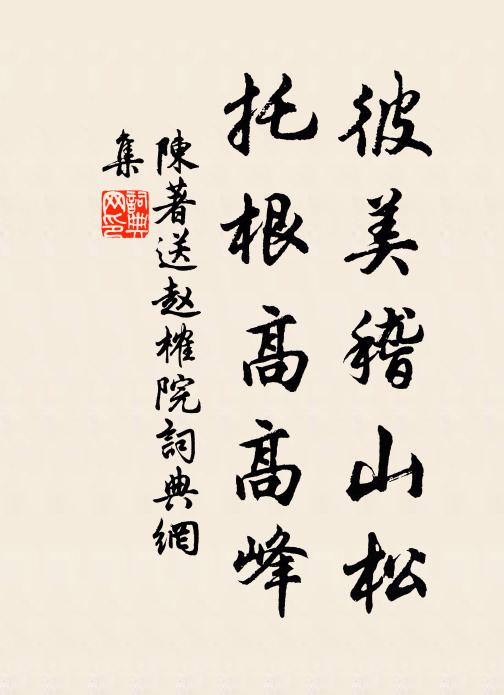 彼美稽山松
托根高高峰
陳著送赵榷院詞典網
集
詞典網印